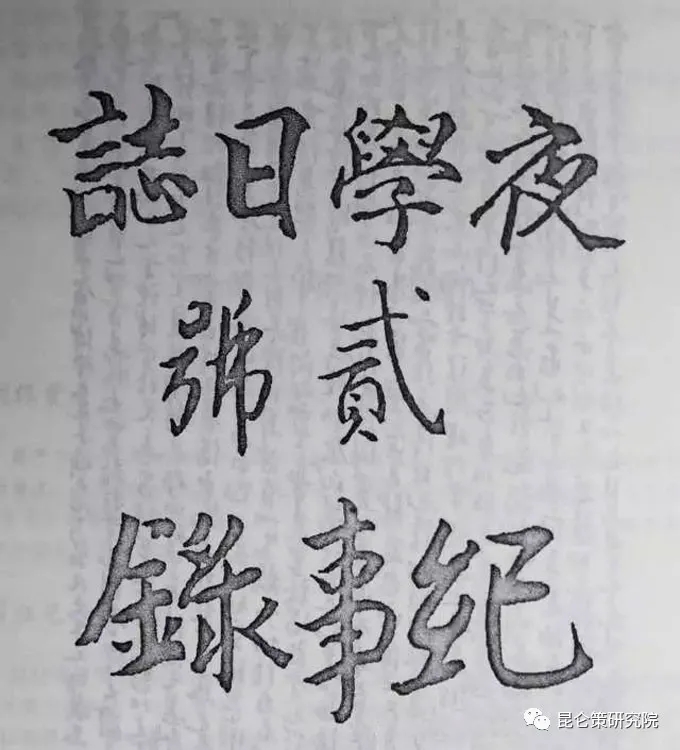 夜學日誌
貳號
紀事錄
昆仑策研究院